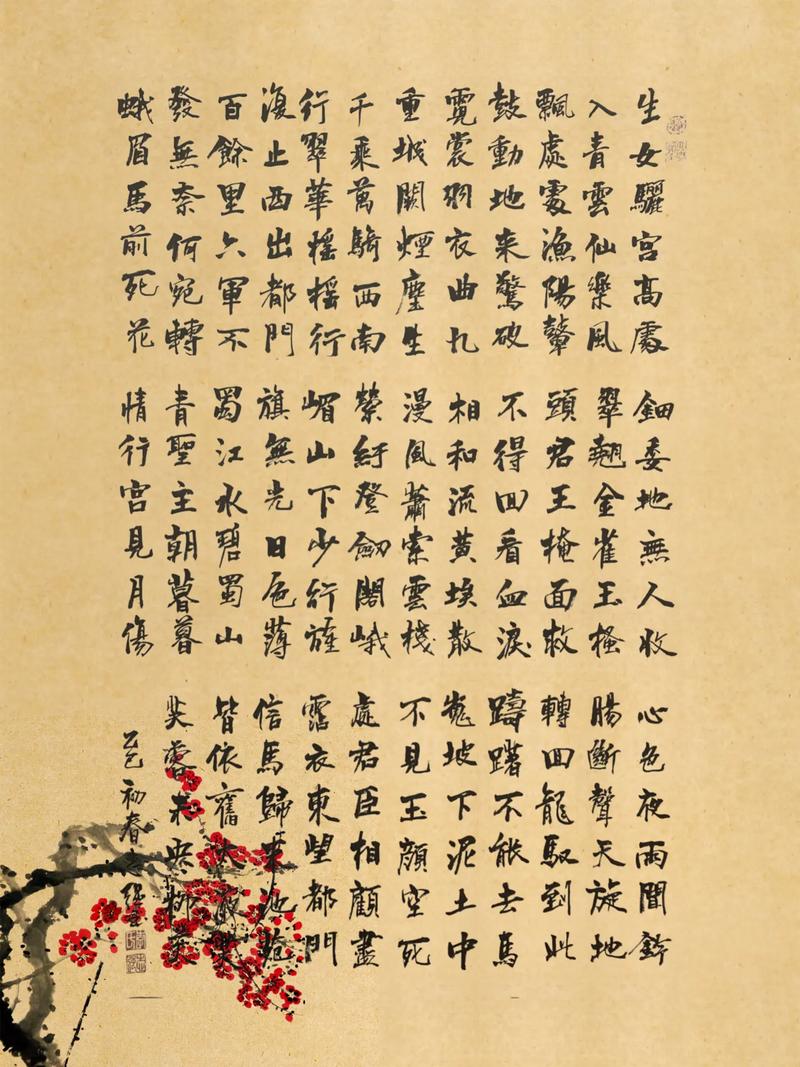 生女驪宮高處
入青雲仙樂風
飄處處漁陽鼙
鼓動地来驚破
霓裳羽衣曲九
重城闕煙塵生
千乘萬騎西南
行翠華摇摇行
復止西出都門
百餘里六軍不
發無奈何宛轉
蛾眉馬前死花
鈿委地無人收
翠翹金雀玉搔
頭君王掩面救
不得回看血淚
相和流黄埃散
漫風蕭索雲棧
縈紆登劍閣峨
嵋山下少行旌
旗無光日色薄
蜀江水碧蜀山
青聖主朝暮暮
情行宮見月傷
心色夜雨聞鈴
腸斷聲天旋地
轉回龍馭到此
躊躇不能去馬
嵬坡下泥土中
不見玉顏空死
處君臣相顧盡
霑衣東望都門
信馬歸来池苑
皆依舊太液
芙蓉未央柳
乙巳初春